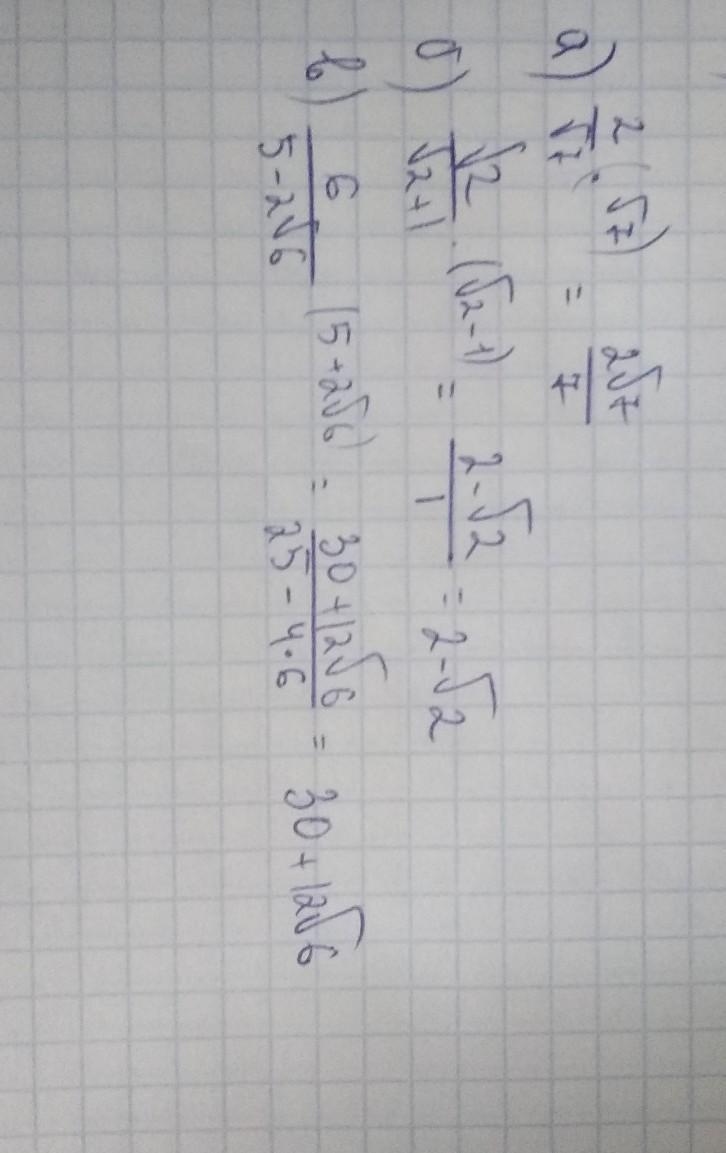 а) 2/√7 · (√7) = 2√7/7
б) √2/√2+1 · (√2-1) = 2-√2/1 = 2-√2
в) 6/5-2√6 (5+2√6) = 30+12√6/25-4·6 = 30+12√6